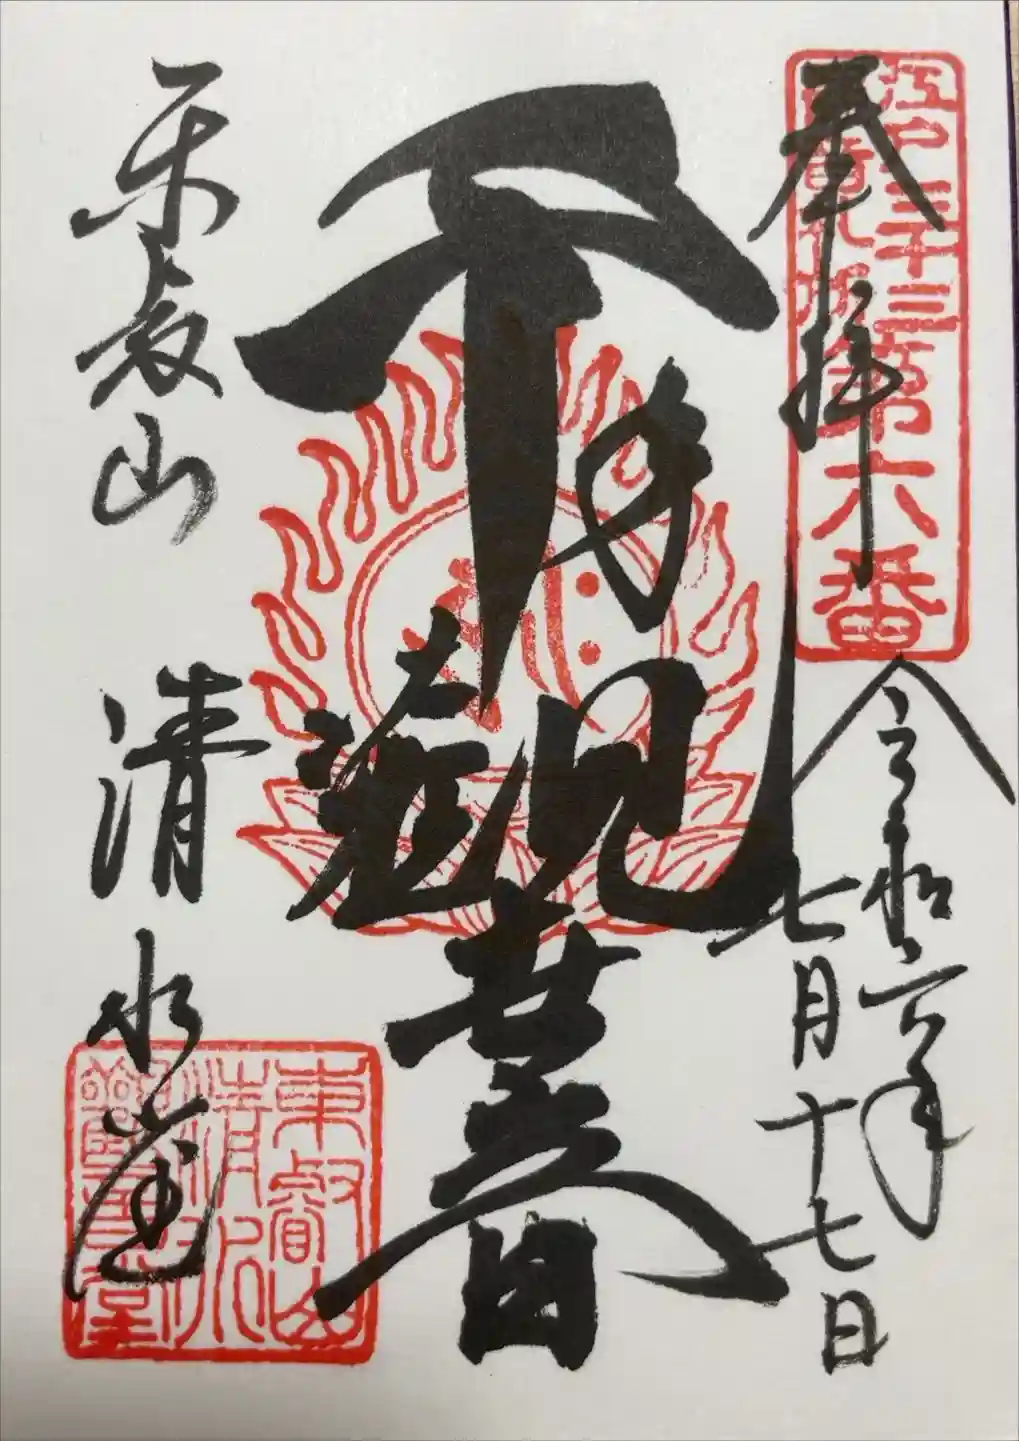 江戸三十三
観音札所
第六番
奉拝
令和六年
七月十七日
千手
大悲
観世音
東叡山
清水堂
東叡山
清水
観音堂